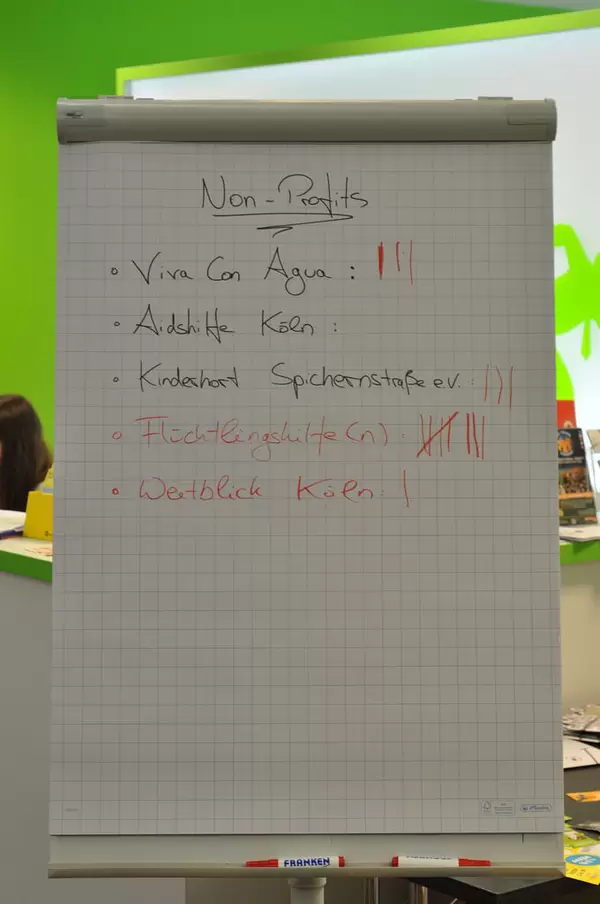 Non-Profits
• Viva Con Agua : |||
• Aidshilfe Köln :
• Kinderhort Spichernstraße e.V. : |||
• Flüchtlingshilfe(n) : |||| |||
• Weitblick Köln : |
FRANKEN